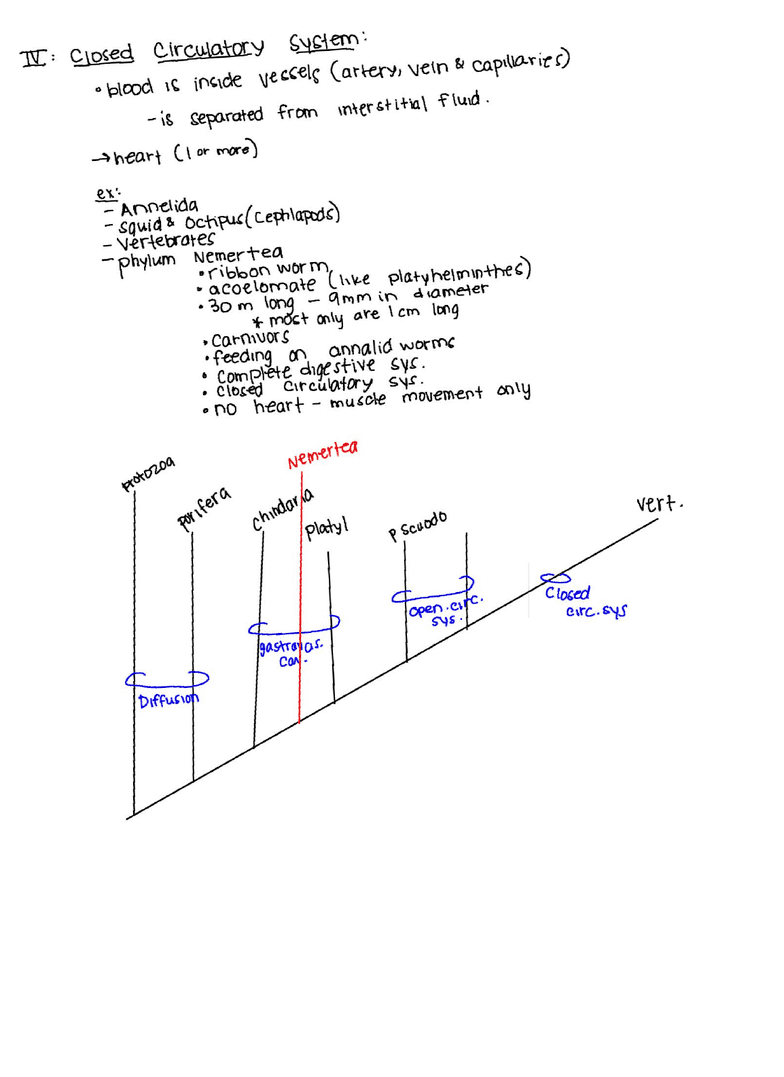 IV: Closed Circulatory System:
• blood is inside vessels (artery, vein & capillaries)
- is separated from interstitial fluid.
→ heart (1 or more)
ex:
- Annelida
- squid & Octipus (Cephlapods)
- Vertebrates
- phylum Nemertea
• ribbon worm
• acoelomate (like platyhelminthes)
• 30 m long - 9mm in diameter
* most only are 1cm long
• Carnivors
• feeding on annalid worms
• Complete digestive sys.
• Closed Circulatory sys.
• no heart - muscle movement only
Nemertea
Protozoa
porifera
Chindaria
Platyl
Pseudo
vert.
Closed
circ. sys
open. circ.
sys.
gastrovas.
Cav.
Diffusion